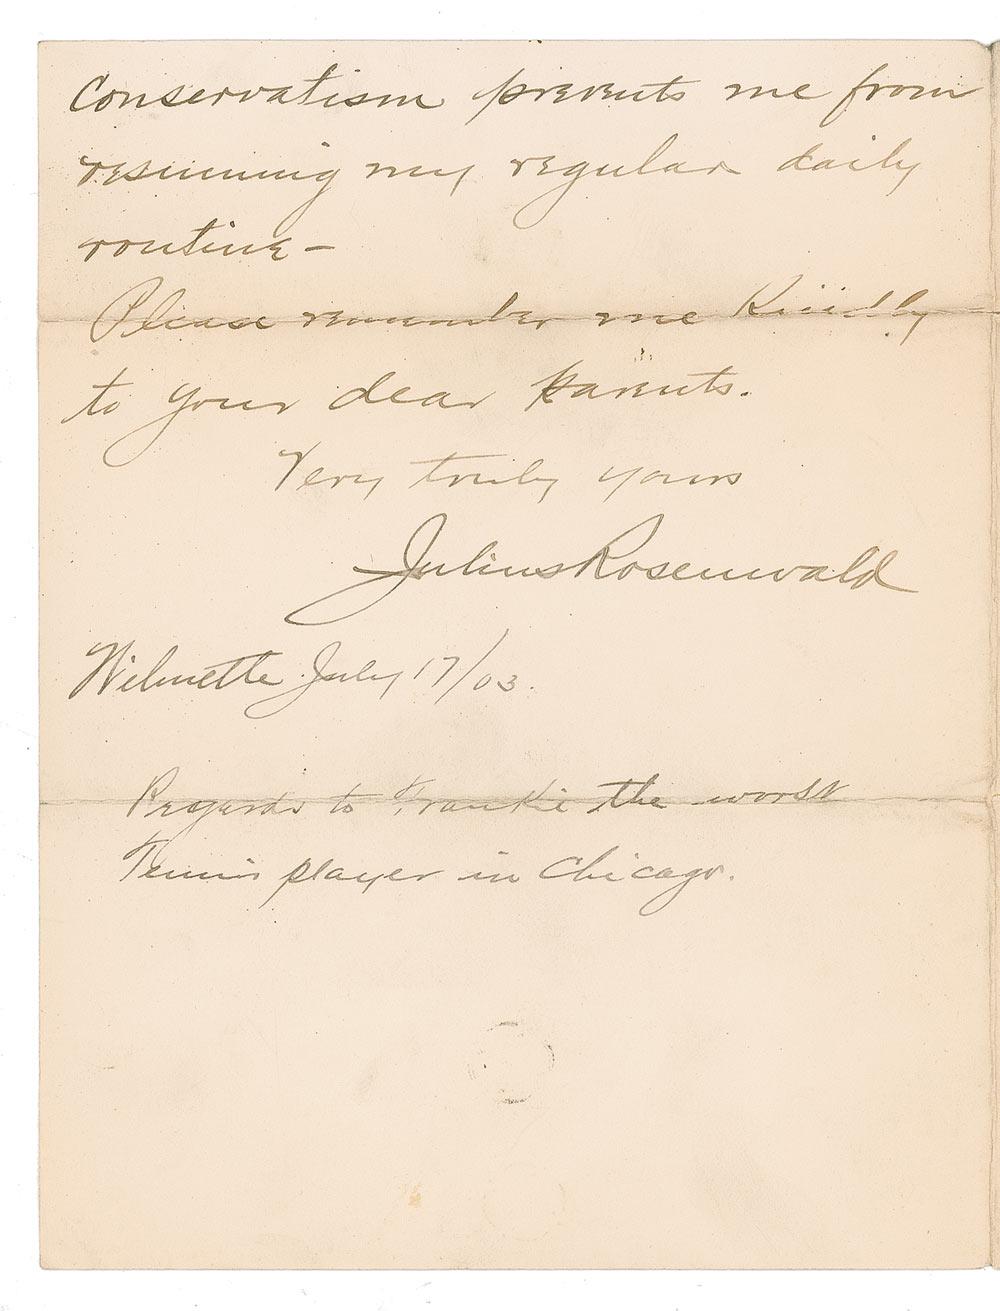 Conservatism prevents me from
resuming my regular daily
routine –
Please remember me Kindly
to your dear parents.
Very truly yours
Julius Rosenwald
Wilmette July 17/03.
Regards to Frankie the worst
Tennis player in Chicago.